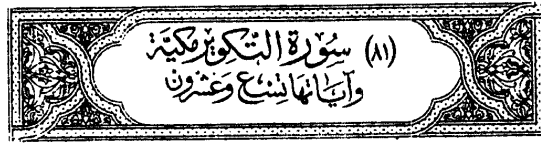 (٨١) سُورَة التَّكوِير مَكيَّة
وَآيَاتهَا تِسْع وَعشرُون